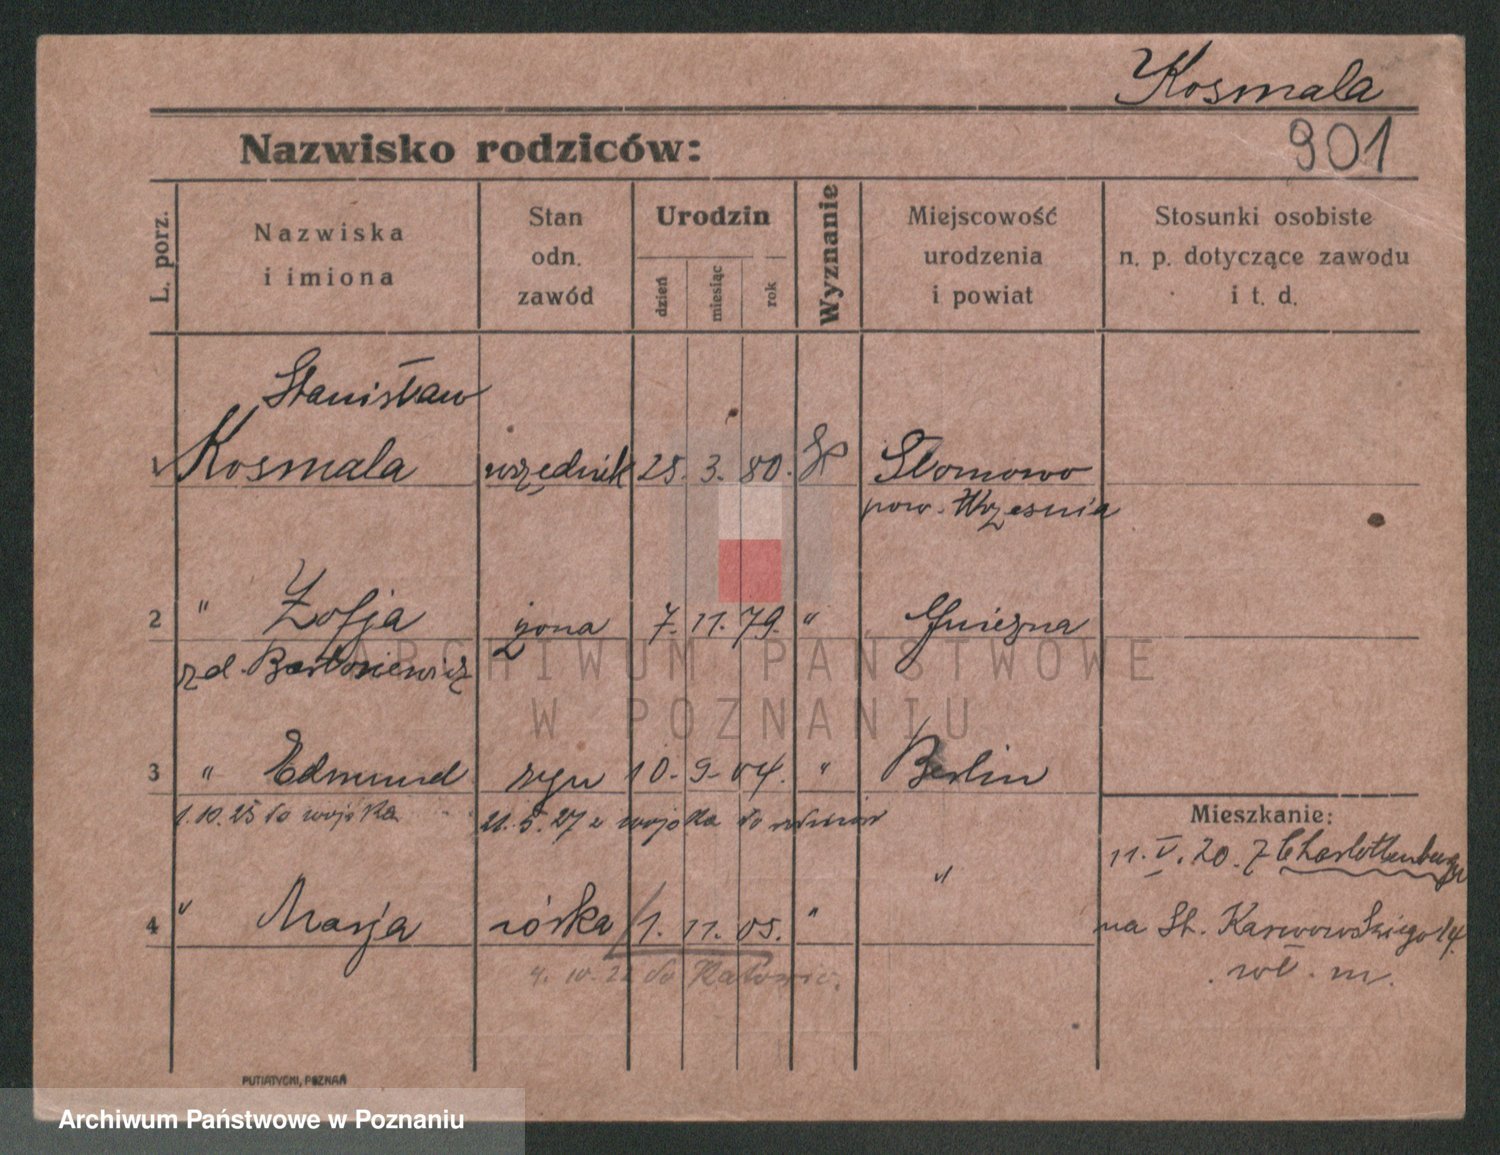 Kosmala
901
Nazwisko rodziców:
L. porz.
Nazwiska
i imiona
Stan
odn.
zawód
Urodzin
dzień
miesiąc
rok
Wyznanie
Miejscowość
urodzenia
i powiat
Stosunki osobiste
n. p. dotyczące zawodu
i t. d.
Stanisław
1 Kosmala urzędnik 25. 3. 80. Słomowo
pow. Września
2 " Zofja żona 7. 11. 79. " Gniezna
zd. Bartosiewicz
3 " Edmund syn 10. 9. 04. " Berlin
1.10.25 do wojska 21.5.27 z wojska do rodziców
4 " Marja córka 1. 11. 05. " "
4.10.22 do Katowic.
Mieszkanie:
11. V. 20. z Charlottenburga
na St. Karwowskiego 14.
wł. m.
PUTIATYCKI, POZNAŃ
ARCHIWUM PAŃSTWOWE
W POZNANIU
Archiwum Państwowe w Poznaniu